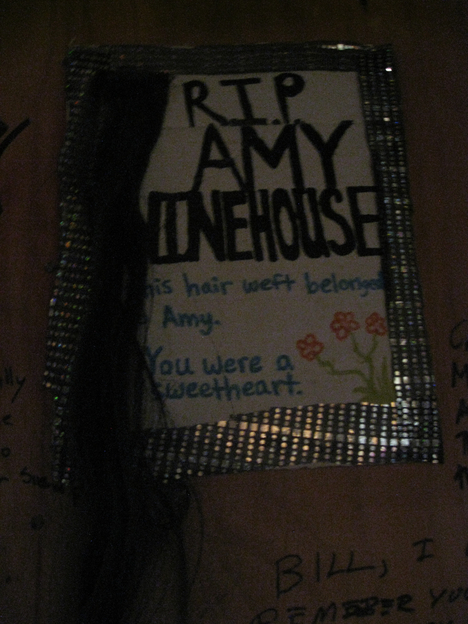 R.I.P.
AMY
WINEHOUSE
his hair weft belonged
Amy.
You were a
sweetheart.
BILL, I
REMEMBER YOU